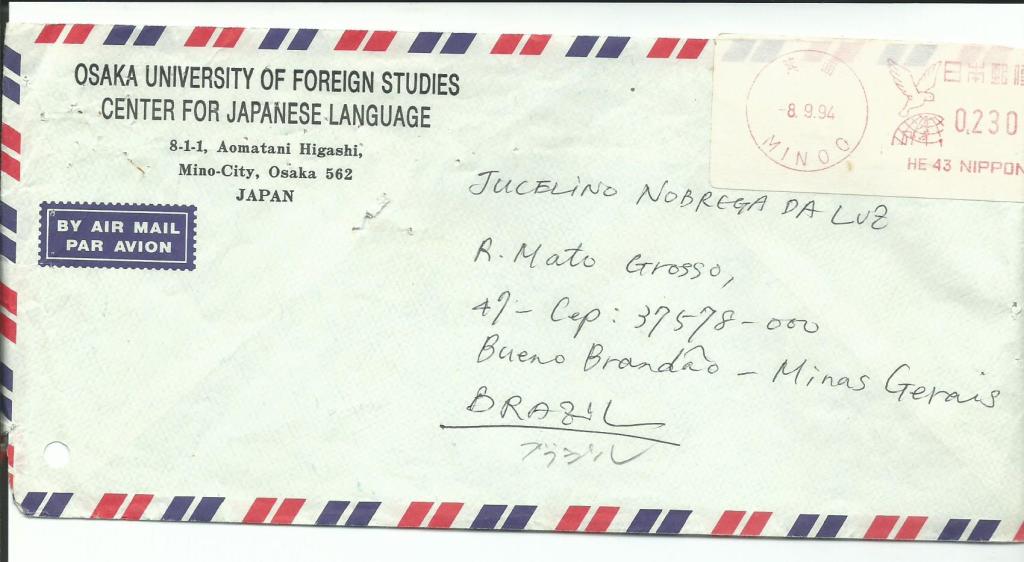 OSAKA UNIVERSITY OF FOREIGN STUDIES
CENTER FOR JAPANESE LANGUAGE
8-1-1, Aomatani Higashi,
Mino-City, Osaka 562
JAPAN
BY AIR MAIL
PAR AVION
箕面
-8. 9.94
MINOO
日本郵便
0,230
HE 43 NIPPON
JUCELINO NOBREGA DA LUZ
R. Mato Grosso,
47- Cep: 37578-000
Bueno Brandão - Minas Gerais
BRAZIL
ブラジル